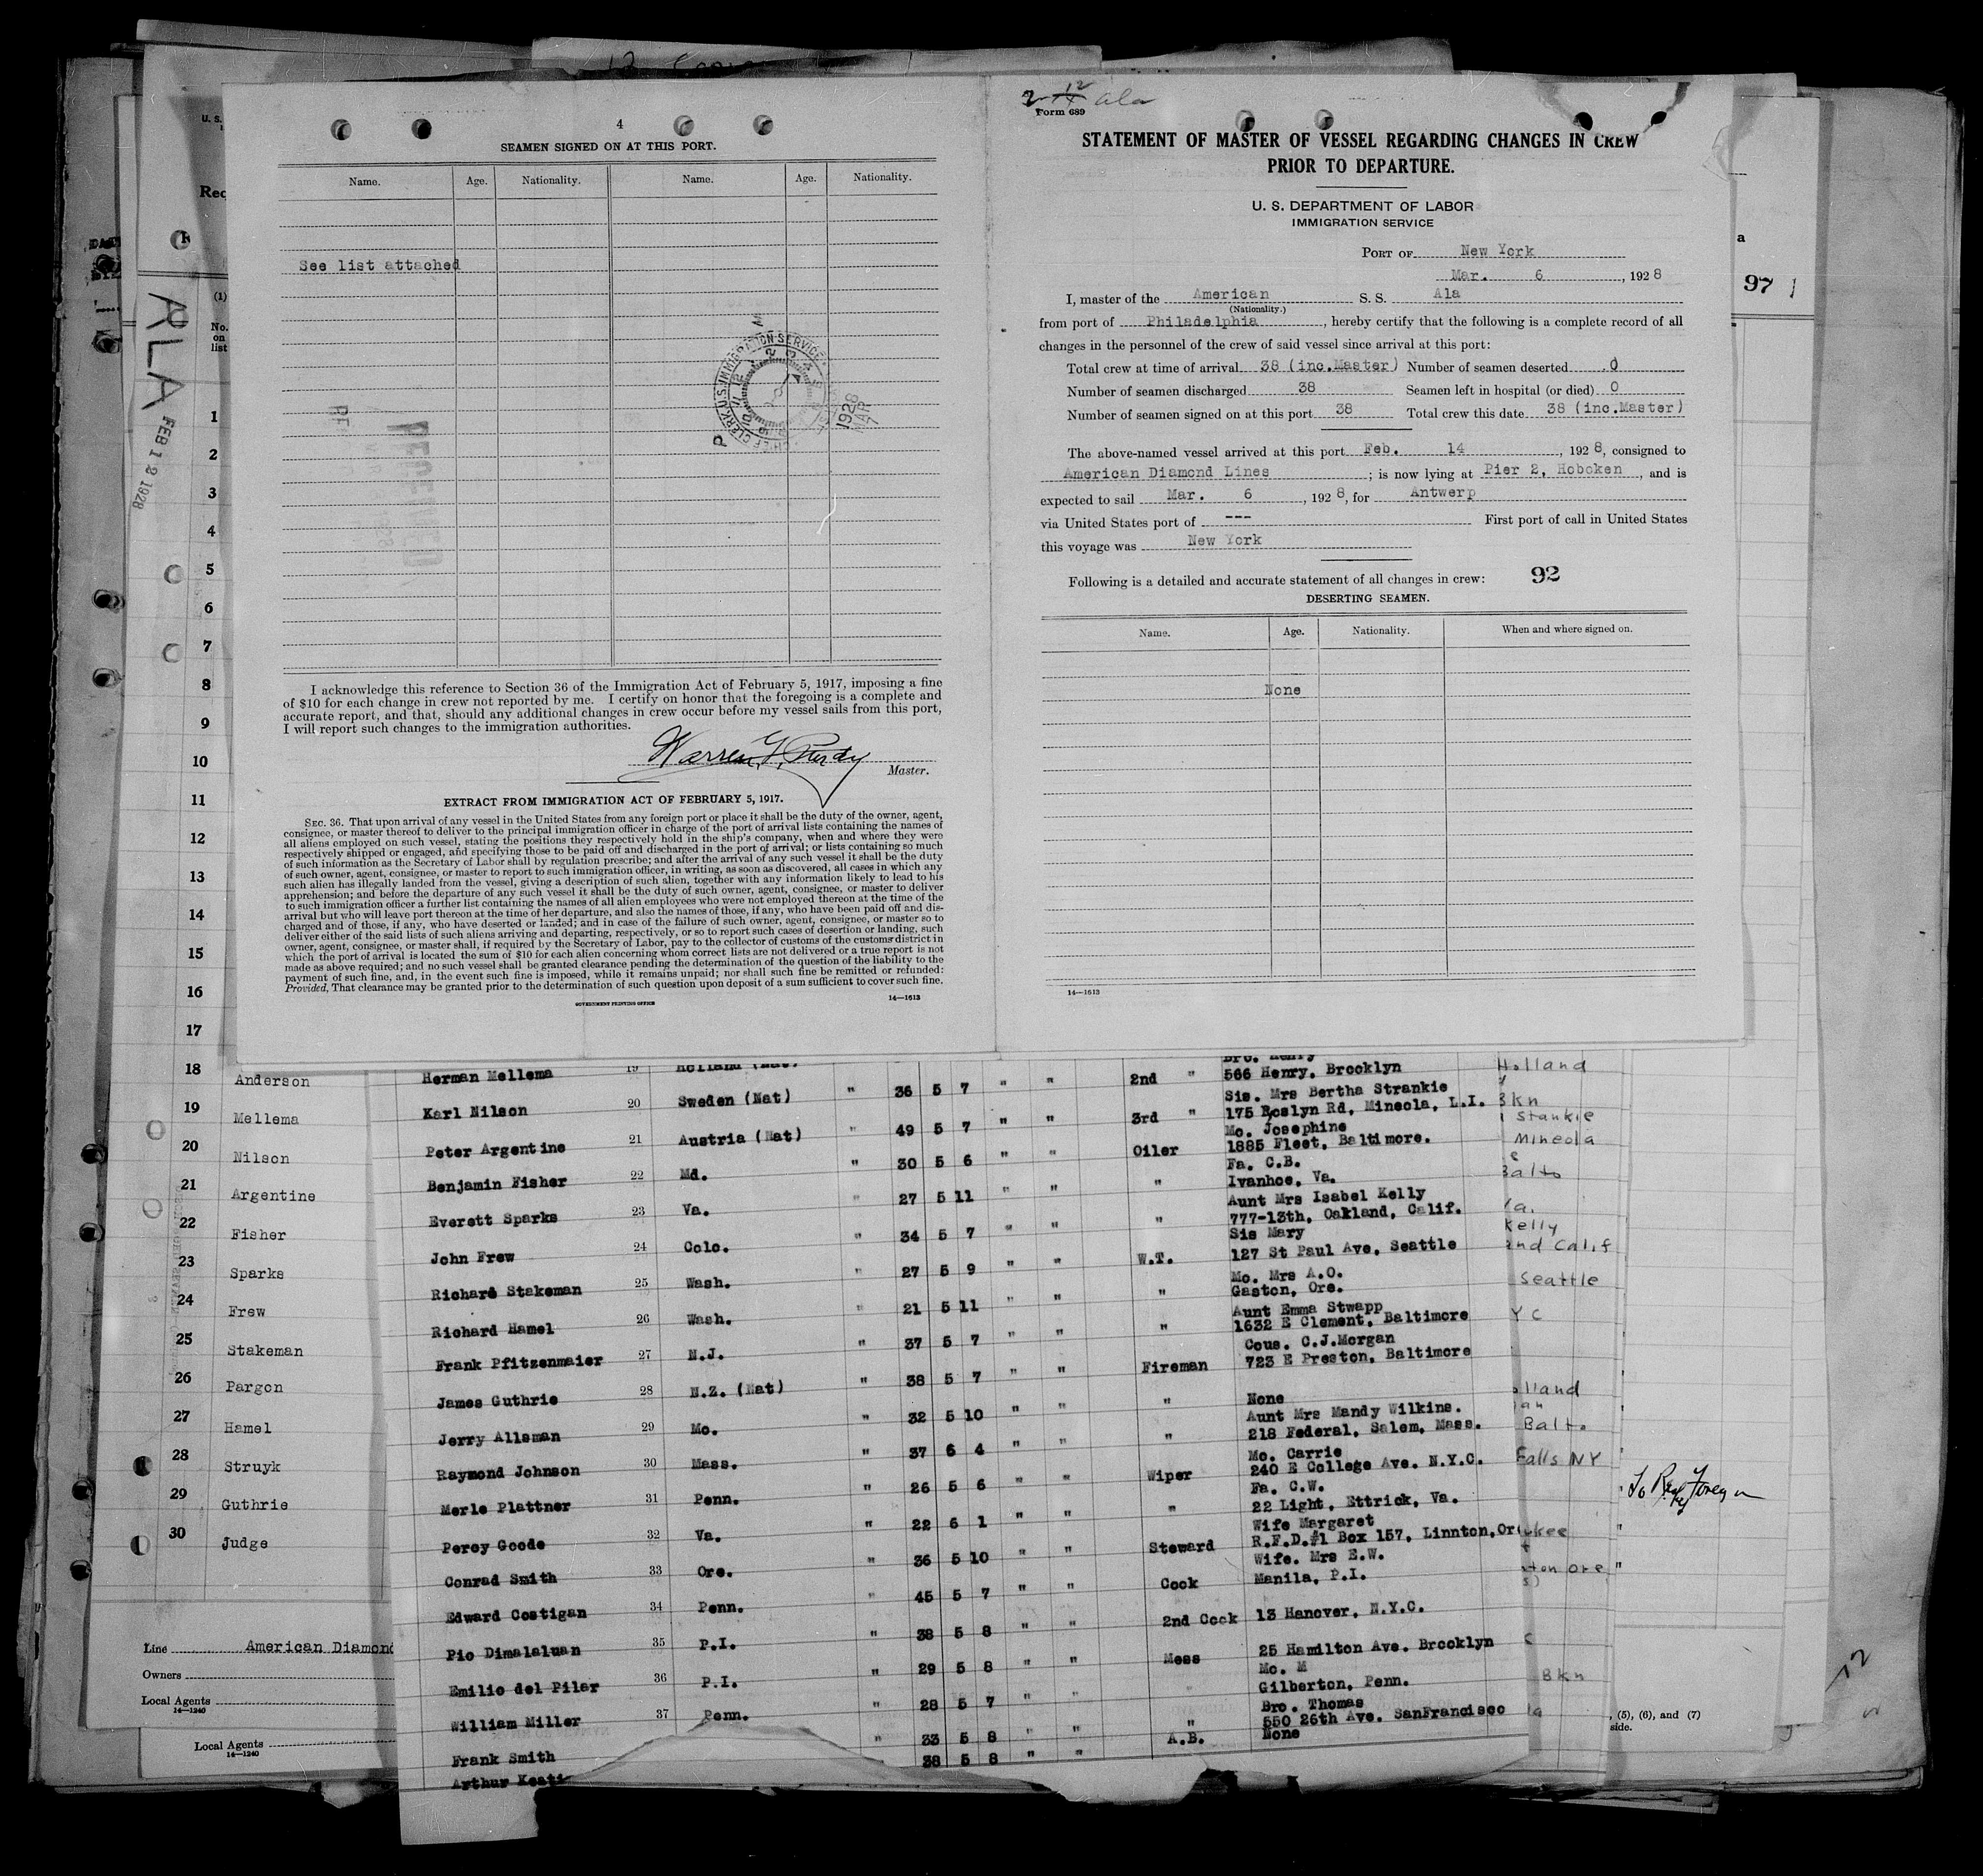 4
SEAMEN SIGNED ON AT THIS PORT.
Name. Age. Nationality. Name. Age. Nationality.
See list attached
CHIEF CLERK, U.S. IMMIGRATION SERVICE
1928 MAR 7
I acknowledge this reference to Section 36 of the Immigration Act of February 5, 1917, imposing a fine
of $10 for each change in crew not reported by me. I certify on honor that the foregoing is a complete and
accurate report, and that, should any additional changes in crew occur before my vessel sails from this port,
I will report such changes to the immigration authorities.
Warren F. Purdy
Master.
EXTRACT FROM IMMIGRATION ACT OF FEBRUARY 5, 1917.
SEC. 36. That upon arrival of any vessel in the United States from any foreign port or place it shall be the duty of the owner, agent,
consignee, or master thereof to deliver to the principal immigration officer in charge of the port of arrival lists containing the names of
all aliens employed on such vessel, stating the positions they respectively hold in the ship's company, when and where they were
respectively shipped or engaged, and specifying those to be paid off and discharged in the port of arrival; or lists containing so much
of such information as the Secretary of Labor shall by regulation prescribe; and after the arrival of any such vessel it shall be the duty
of such owner, agent, consignee, or master to report to such immigration officer, in writing, as soon as discovered, all cases in which any
such alien has illegally landed from the vessel, giving a description of such alien, together with any information likely to lead to his
apprehension; and before the departure of any such vessel it shall be the duty of such owner, agent, consignee, or master to deliver
to such immigration officer a further list containing the names of all alien employees who were not employed thereon at the time of the
arrival but who will leave port thereon at the time of her departure, and also the names of those, if any, who have been paid off and dis-
charged and of those, if any, who have deserted or landed; and in case of the failure of such owner, agent, consignee, or master so to
deliver either of the said lists of such aliens arriving and departing, respectively, or so to report such cases of desertion or landing, such
owner, agent, consignee, or master shall, if required by the Secretary of Labor, pay to the collector of customs of the customs district in
which the port of arrival is located the sum of $10 for each alien concerning whom correct lists are not delivered or a true report is not
made as above required; and no such vessel shall be granted clearance pending the determination of the question of the liability to the
payment of such fine, and, in the event such fine is imposed, while it remains unpaid; nor shall such fine be remitted or refunded:
Provided, That clearance may be granted prior to the determination of such question upon deposit of a sum sufficient to cover such fine.
GOVERNMENT PRINTING OFFICE
14—1613
12 Ala
Form 689
STATEMENT OF MASTER OF VESSEL REGARDING CHANGES IN CREW
PRIOR TO DEPARTURE.
U. S. DEPARTMENT OF LABOR
IMMIGRATION SERVICE
PORT OF New York
Mar. 6, 1928
I, master of the American S. S. Ala
(Nationality.)
from port of Philadelphia, hereby certify that the following is a complete record of all
changes in the personnel of the crew of said vessel since arrival at this port:
Total crew at time of arrival 38 (inc.Master) Number of seamen deserted 0
Number of seamen discharged 38 Seamen left in hospital (or died) 0
Number of seamen signed on at this port 38 Total crew this date 38 (inc.Master)
The above-named vessel arrived at this port Feb. 14, 1928, consigned to
American Diamond Lines; is now lying at Pier 2, Hoboken, and is
expected to sail Mar. 6, 1928, for Antwerp
via United States port of --- First port of call in United States
this voyage was New York
Following is a detailed and accurate statement of all changes in crew: 92
DESERTING SEAMEN.
Name. Age. Nationality. When and where signed on.
None
14—1613
97
ALA
FEB 12 1928
(1)
No.
on
list
1
2
3
4
5
6
7
8
9
10
11
12
13
14
15
16
17
18 Anderson
19 Mellema
20 Nilson
21 Argentine
22 Fisher
23 Sparks
24 Frew
25 Stakeman
26 Pargon
27 Hamel
28 Struyk
29 Guthrie
30 Judge
Line American Diamond
Owners
Local Agents
14—1240
Local Agents
14—1240
Herman Mellema 19 Holland (Nat)
Karl Nilson 20 Sweden (Nat) " 36 5 7 " " 2nd " 566 Henry, Brooklyn
Sis. Mrs Bertha Strankie
Peter Argentine 21 Austria (Nat) " 49 5 7 " " 3rd " 175 Roslyn Rd, Mineola, L.I.
Mo. Josephine
Benjamin Fisher 22 Md. " 30 5 6 " " Oiler 1885 Fleet, Baltimore.
Fa. C.B.
Everett Sparks 23 Va. " 27 5 11 " " " Ivanhoe, Va.
Aunt Mrs Isabel Kelly
John Frew 24 Colo. " 34 5 7 " " " 777-13th, Oakland, Calif.
Sis Mary
Richard Stakeman 25 Wash. " 27 5 9 " " W.T. 127 St Paul Ave, Seattle
Mo. Mrs A.O.
Richard Hamel 26 Wash. " 21 5 11 " " " Gaston, Ore.
Aunt Emma Stwapp
Frank Pfitzenmaier 27 N.J. " 37 5 7 " " " 1632 E Clement, Baltimore
Cous. C.J.Morgan
James Guthrie 28 N.Z. (Nat) " 38 5 7 " " Fireman 723 E Preston, Baltimore
Jerry Allsman 29 Mo. " 32 5 10 " " " None
Aunt Mrs Mandy Wilkins.
Raymond Johnson 30 Mass. " 37 6 4 " " " 218 Federal, Salem, Mass.
Mo. Carrie
Merle Plattner 31 Penn. " 26 5 6 " " Wiper 240 E College Ave. N.Y.C.
Fa. C.W.
Percy Goode 32 Va. " 22 6 1 " " " 22 Light, Ettrick, Va.
Wife Margaret
Conrad Smith 33 Ore. " 36 5 10 " " Steward R.F.D.#1 Box 157, Linnton, Or
Wife. Mrs E.W.
Edward Costigan 34 Penn. " 45 5 7 " " Cook Manila, P.I.
Pio Dimalaluan 35 P.I. " 38 5 8 " " 2nd Cook 13 Hanover, N.Y.C.
Emilio del Pilar 36 P.I. " 29 5 8 " " Mess 25 Hamilton Ave. Brooklyn
Mo. M
William Miller 37 Penn. " 28 5 7 " " " Gilberton, Penn.
Bro. Thomas
Frank Smith " 33 5 8 " " " 550 26th Ave. SanFrancisco
38 5 8 " " A.B. None
Holland
Stankie
Mineola
Balto
Kelly
and Calif
Seattle
Y C
Balt.
Falls NY
Bkn
, (5), (6), and (7)
side.
12